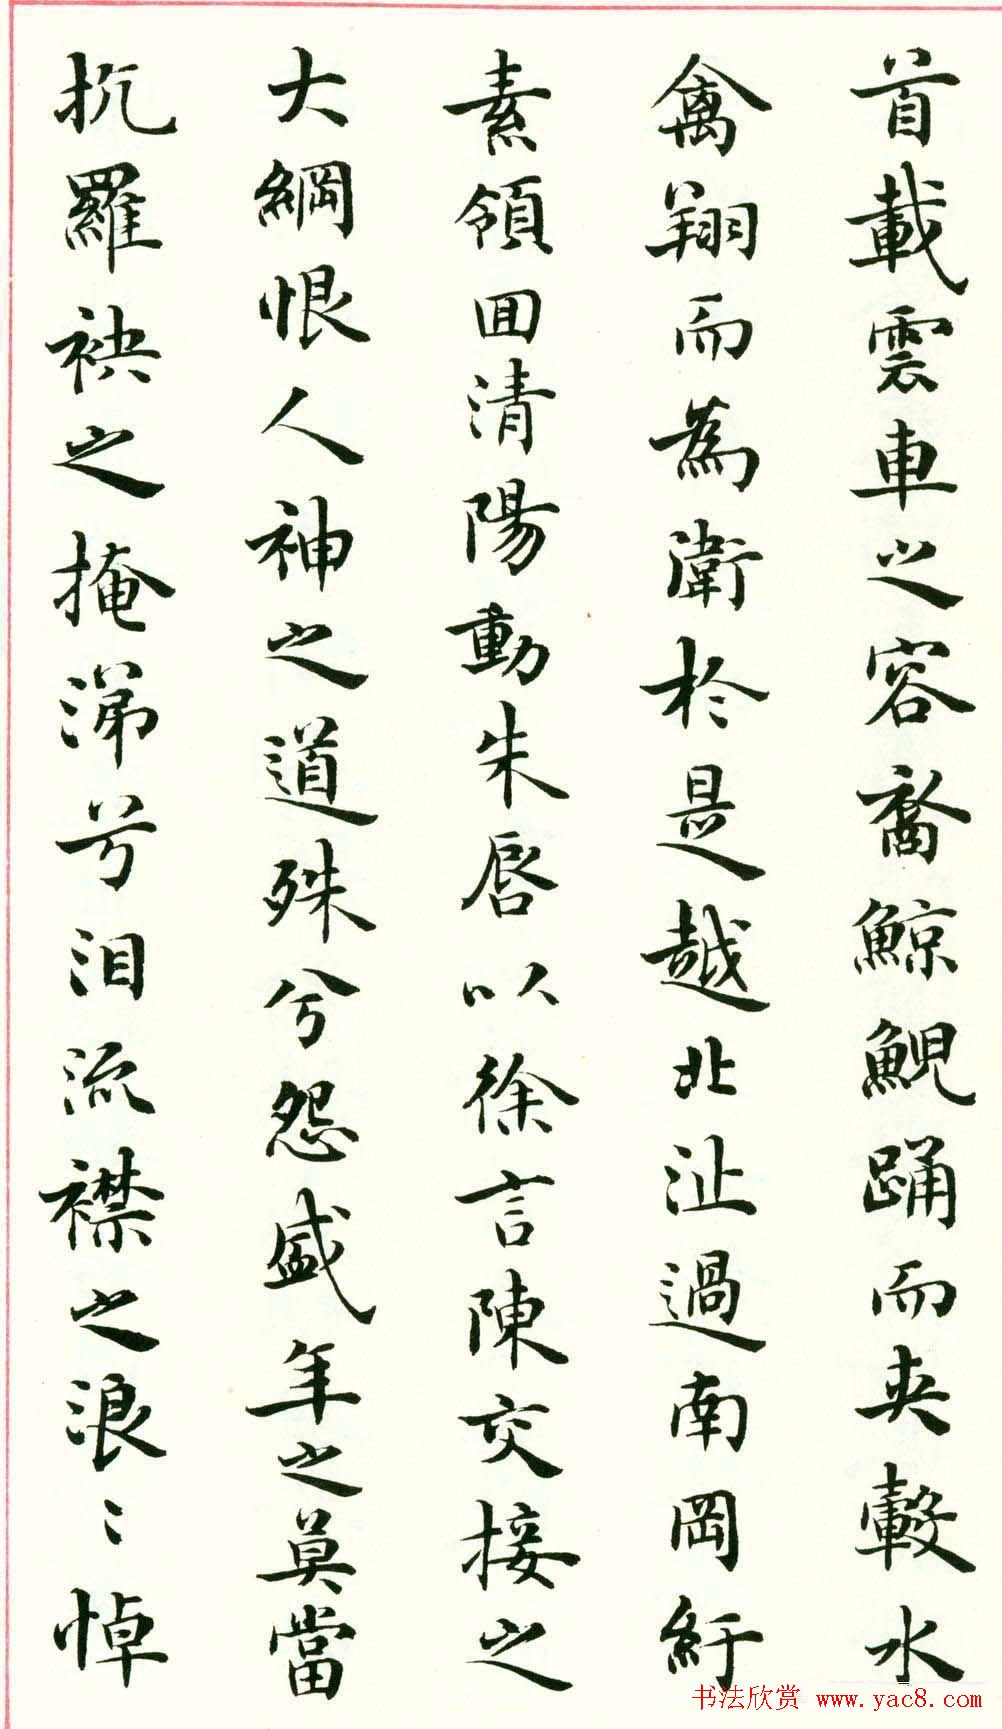 首載雲車之容裔鯨鯢踊而夾轂水
禽翔而為衛於是越北沚過南岡紆
素領囬清陽動朱唇以徐言陳交接之
大綱恨人神之道殊兮怨盛年之莫當
抗羅袂之掩涕兮泪流襟之浪〻悼
书法欣赏 www.yac8.com